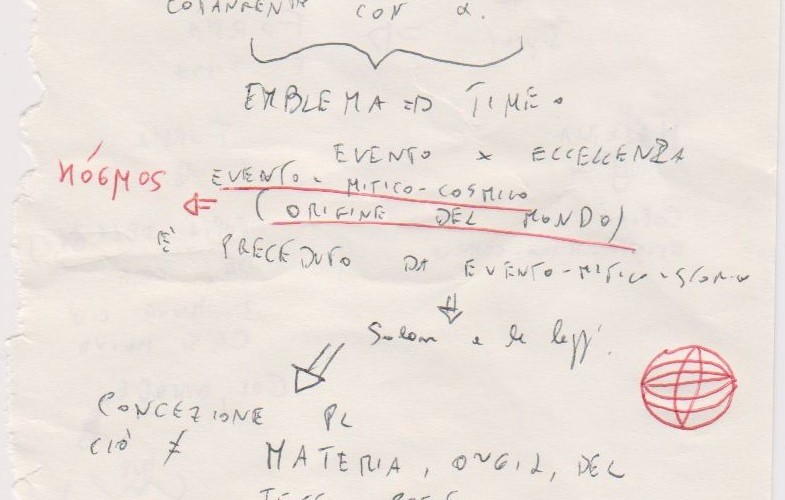 CON α.
EMBLEMA => TIME.
EVENTO x ECCELLENZA
KÓSMOS
EVENTO - MITICO-COSMICO
(ORIGINE DEL MONDO)
È PRECEDUTO DA EVENTO-MITICO-STORICO
Solon e le leggi.
CONCEZIONE PL
CIÒ ≠
MATERIA, ORIGI, DEL